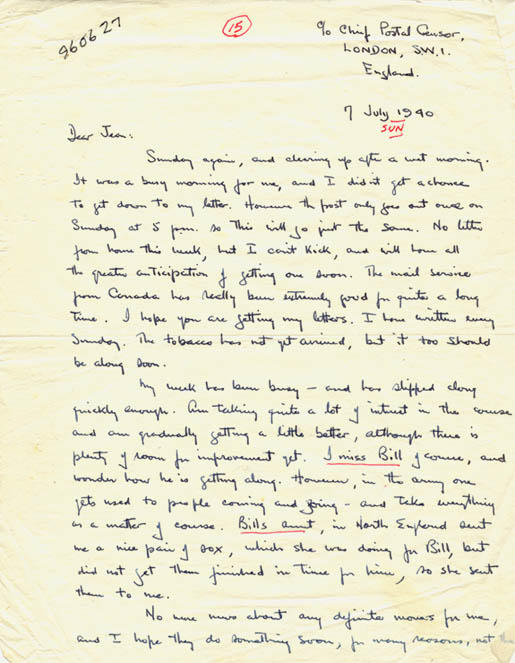 860627
15
c/o Chief Postal Censor,
LONDON, S.W.1.
England.
7 July 1940
SUN
Dear Jean:
Sunday again, and clearing up after a wet morning.
It was a busy morning for me, and I didn't get a chance
to get down to my letter. However the post only goes out once on
Sunday at 5 p.m. so this will go just the same. No letter
from home this week, but I can't kick, and will have all
the greater anticipation of getting one soon. The mail service
from Canada has really been extremely good for quite a long
time. I hope you are getting my letters. I have written every
Sunday. The tobacco has not yet arrived, but it too should
be along soon.
My week has been busy – and has slipped along
quickly enough. Am taking quite a lot of interest in the course
and am gradually getting a little better, although there is
plenty of room for improvement yet. I miss Bill of course, and
wonder how he is getting along. However, in the army one
gets used to people coming and going – and takes everything
as a matter of course. Bill's aunt, in North England sent
me a nice pair of sox, which she was doing for Bill, but
did not get them finished in time for him, so she sent
them to me.
No more news about any definite moves for me,
and I hope they do something soon, for many reasons, not the